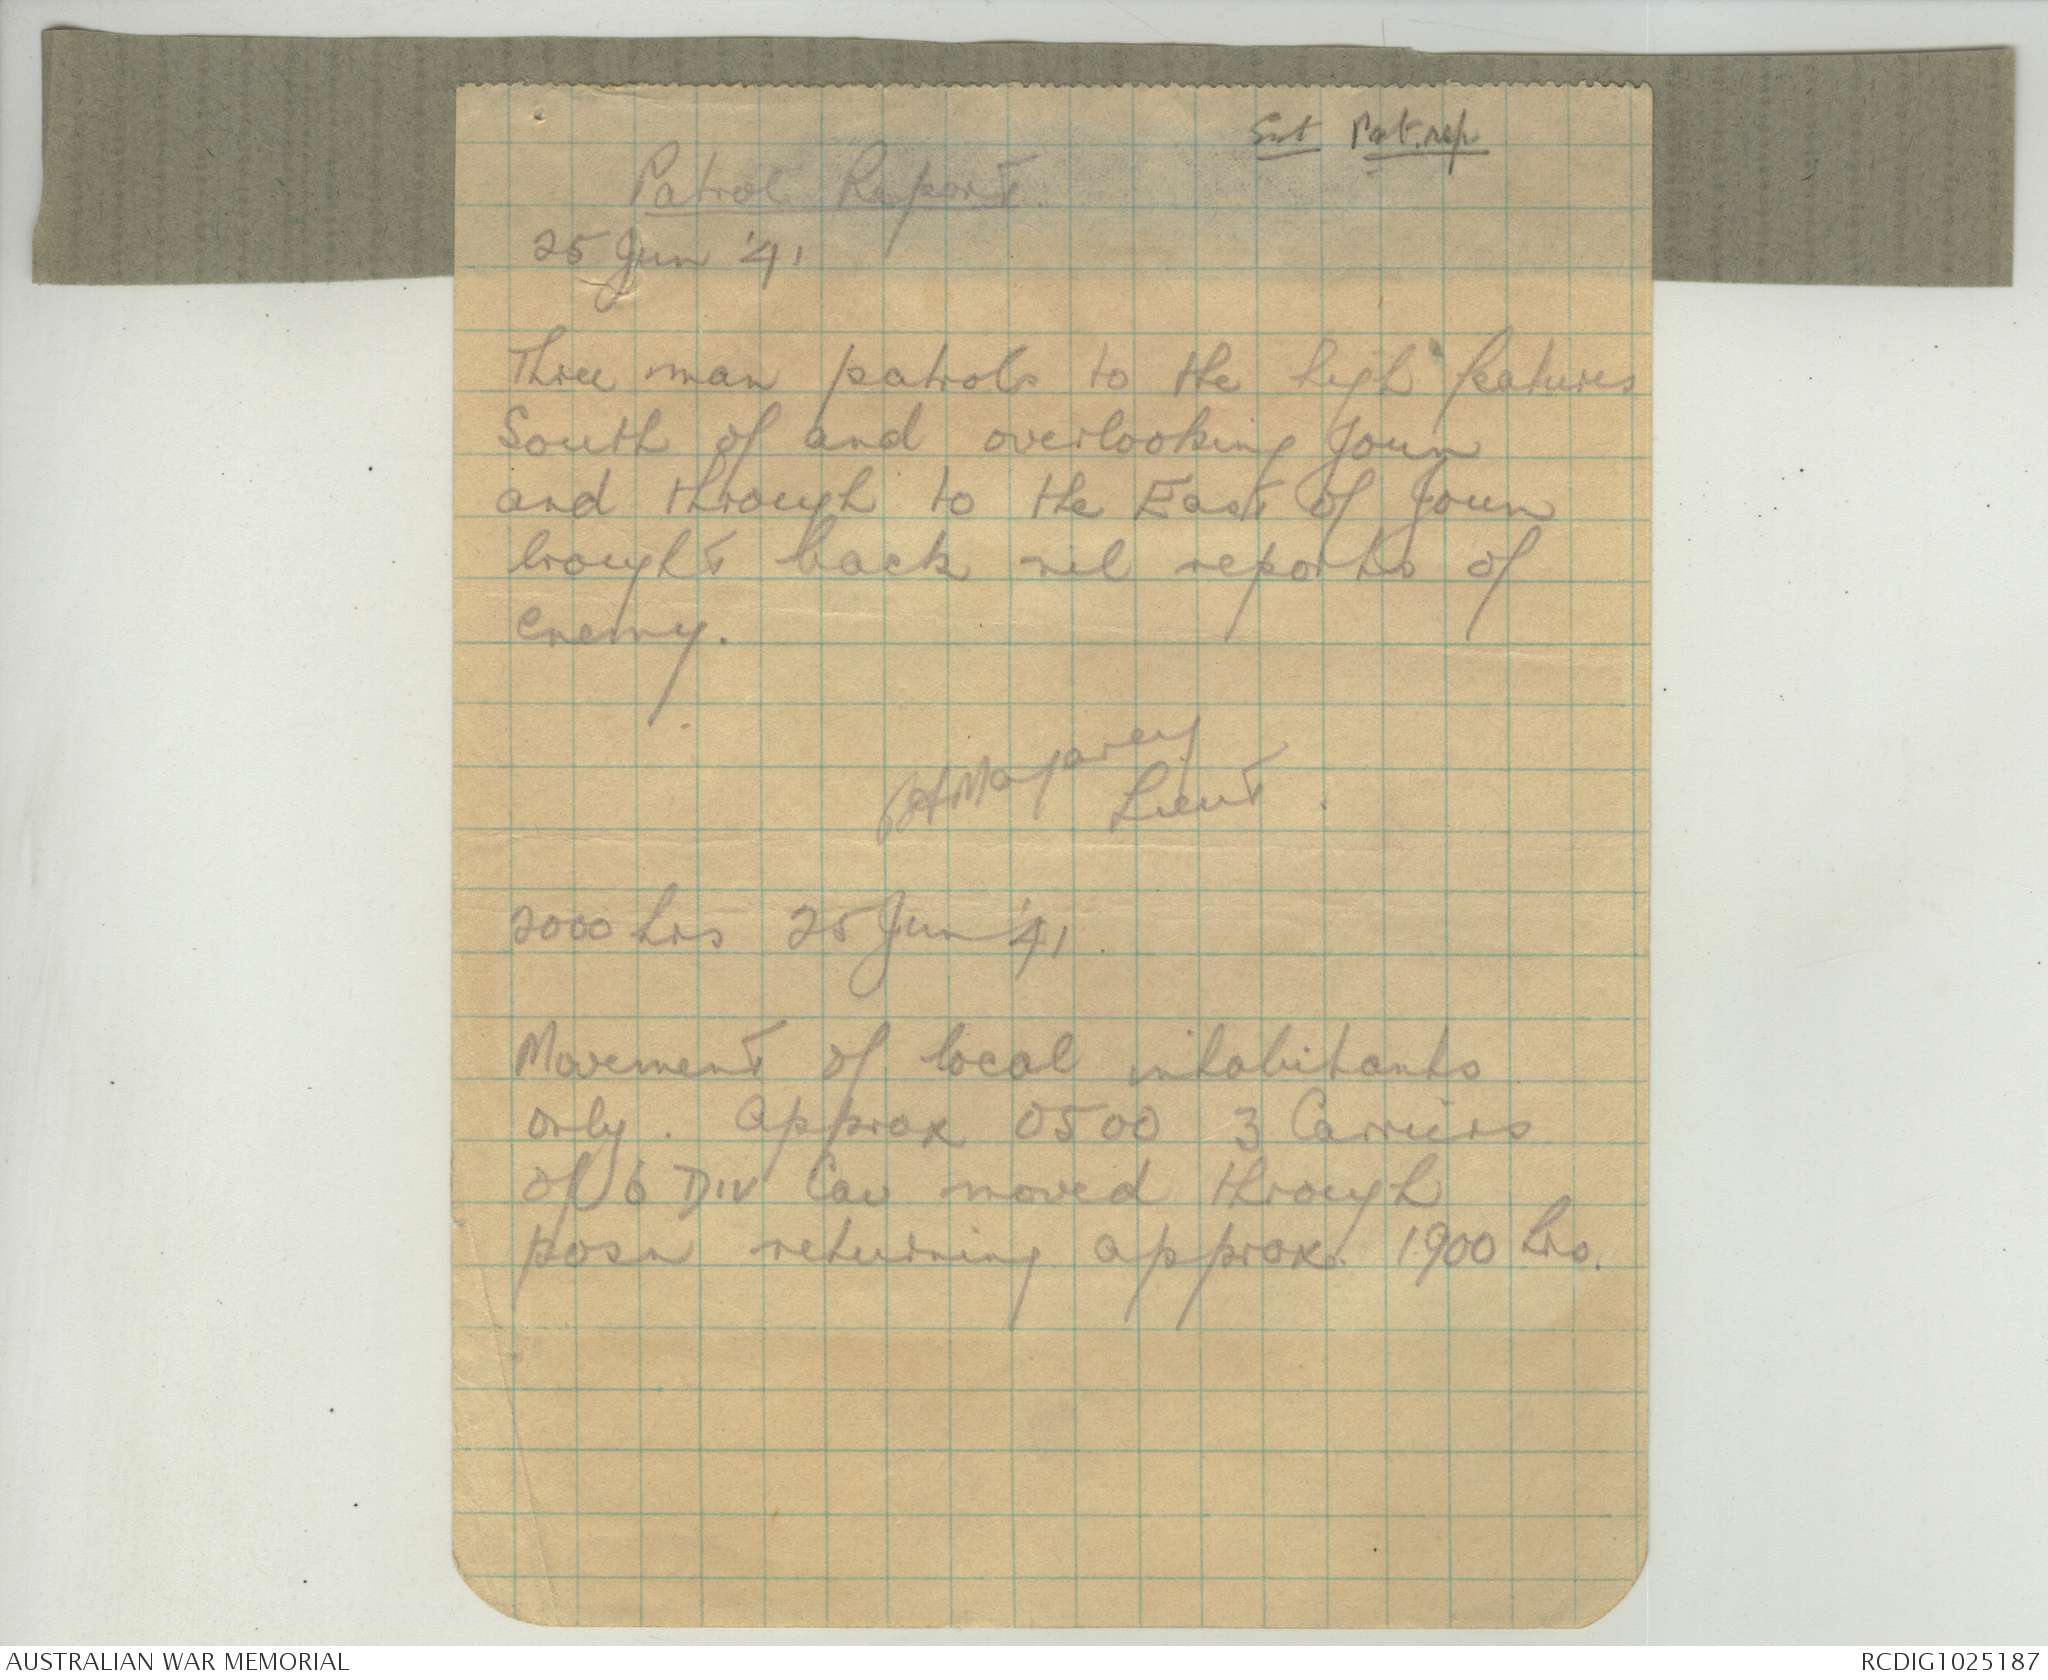 Pat. rep
Patrol Report.
25 Jun '41
Three man patrols to the high features
South of and overlooking Joun
and through to the East of Joun
brought back nil reports of
enemy.
Magarey
Lieut.
2000 hrs 25 Jun '41.
Movement of local inhabitants
only. Approx 0500 3 Carriers
of 6 Div Cav moved through
posn returning approx. 1900 hrs.
AUSTRALIAN WAR MEMORIAL
RCDIG1025187